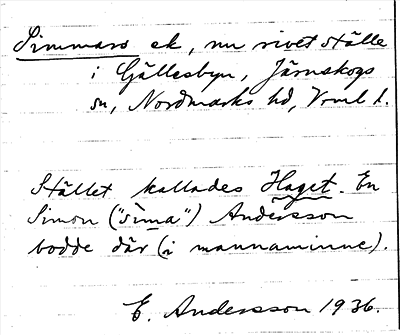 Simmars ek, nu rivet ställe
i Gällesbyn, Järnskogs
sn, Nordmarks hd, Vrml l.
Stället kallades Haget. En
Simon ("sima") Andersson
bodde där (i mannaminne).
E. Andersson 1936.